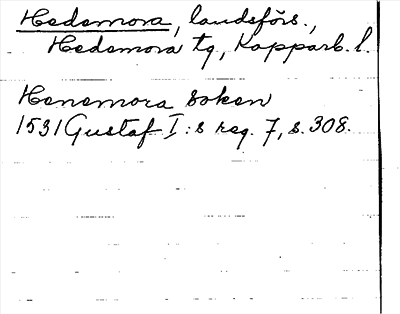 Hedemora, landsförs.,
Hedemora tg, Kopparb. l.
Henemora soken
1531 Gustaf I:s reg. 7, s. 308.